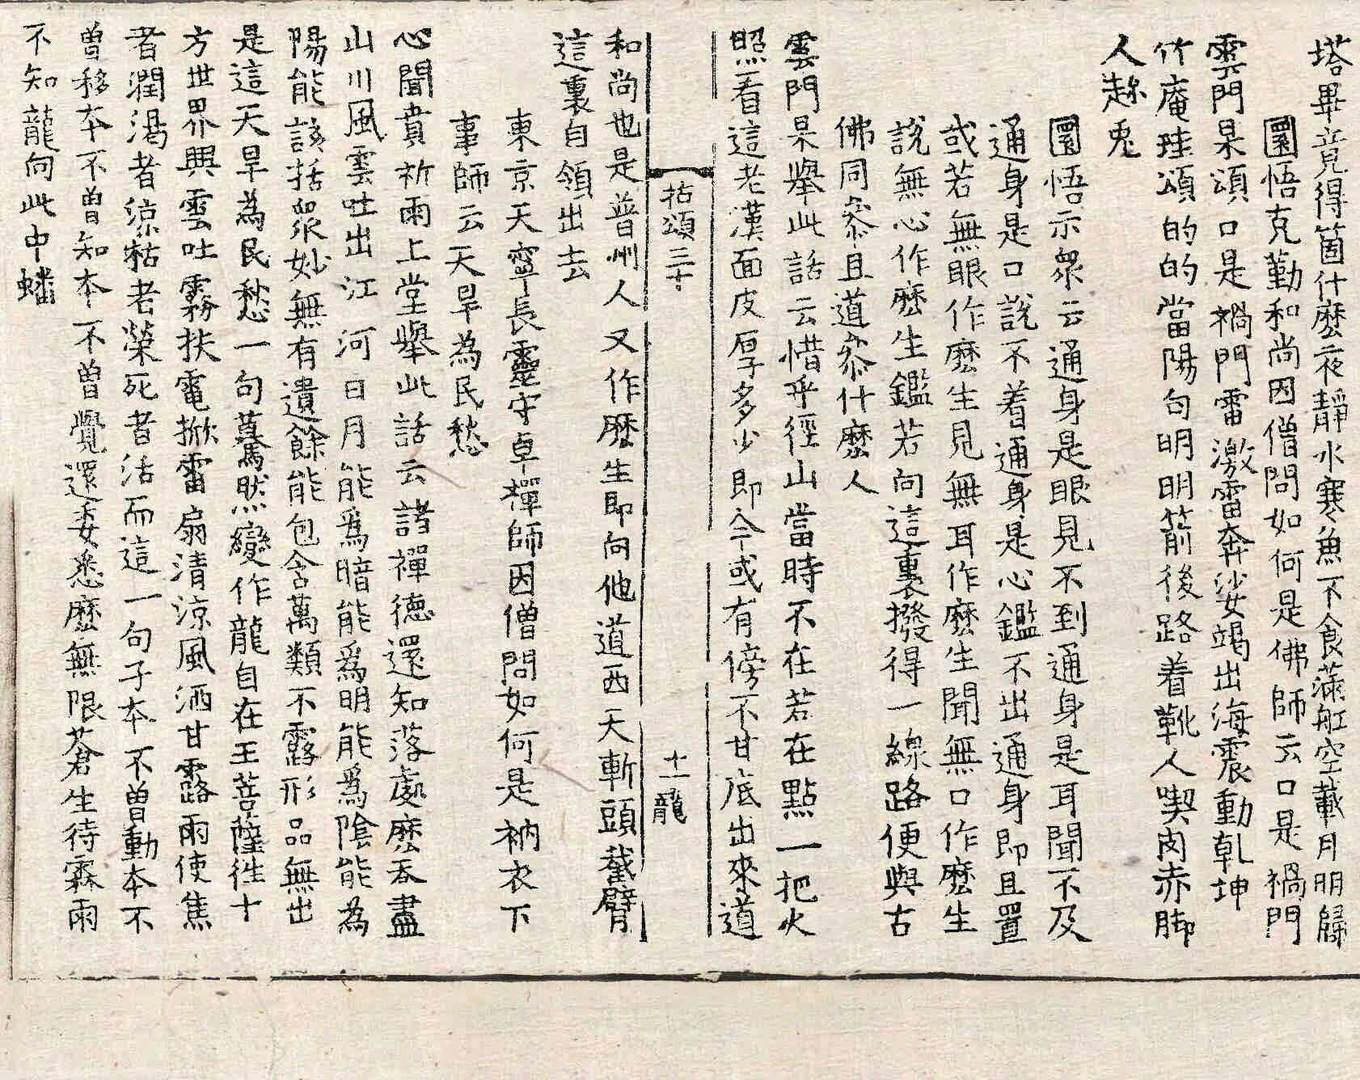 塔畢竟得箇什麽夜靜水寒魚不食滿舡空載月明歸
圜悟克勤和尚因僧問如何是佛師云口是禍門
雲門杲頌口是禍門雷激雷奔娑竭出海震動乹坤
竹庵珪頌的的當陽句明明箭後路着靴人喫肉赤脚
人趂兎
圜悟示衆云通身是眼見不到通身是耳聞不及
通身是口說不着通身是心鑑不出通身即且置
或若無眼作麽生見無耳作麽生聞無口作麽生
說無心作麽生鑑若向這裏撥得一線路便與古
佛同叅且道叅什麽人
雲門杲舉此話云惜乎徑山當時不在若在點一把火
照看這老漢面皮厚多少即今或有傍不甘底出來道
拈頌三十
十一
龍
和尚也是普州人又作麽生即向他道西天斬頭截臂
這裏自領出去
東京天寧長靈守卓禪師因僧問如何是衲衣下
事師云天旱為民愁
心聞賁祈雨上堂舉此話云諸禪德還知落處麽吞盡
山川風雲吐出江河日月能爲暗能爲明能爲陰能為
陽能該括衆妙無有遺餘能包含萬類不露形品無出
是這天旱為民愁一句驀然變作龍自在王菩薩徃十
方世界興雲吐霧扶電掀雷扇清涼風洒甘露雨使焦
者潤渴者涼枯者榮死者活而這一句子本不曾動本不
曾移本不曾知本不曾覺還委悉麽無限蒼生待霖雨
不知龍向此中蟠